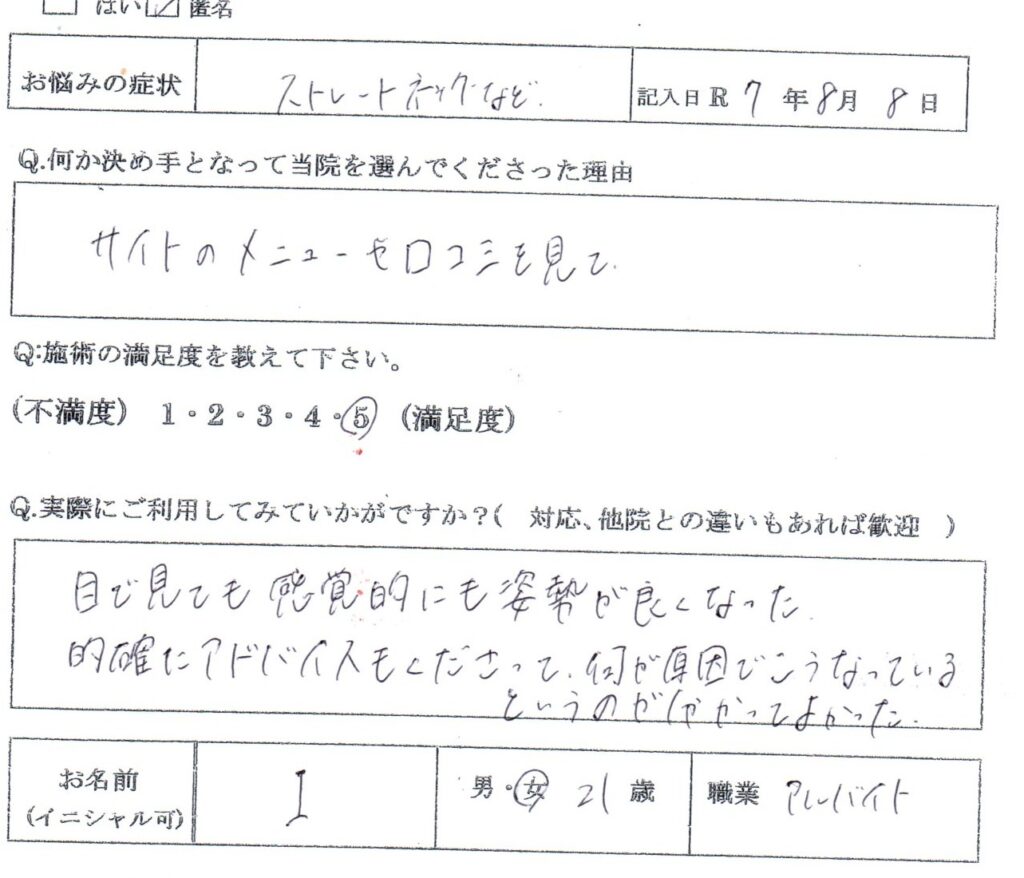 はい 匿名
お悩みの症状 ストレートネックなど. 記入日 R 7 年 8月 8 日
Q.何か決め手となって当院を選んでくださった理由
サイトのメニューや口コミを見て.
Q:施術の満足度を教えて下さい。
(不満度) 1・2・3・4・5 (満足度)
Q.実際にご利用してみていかがですか?( 対応、他院との違いもあれば歓迎 )
目で見ても感覚的にも姿勢が良くなった.
的確にアドバイスもくださって.何が原因でこうなっている
というのが分かってよかった.
お名前 I 男・女 21 歳 職業 アルバイト
(イニシャル可)